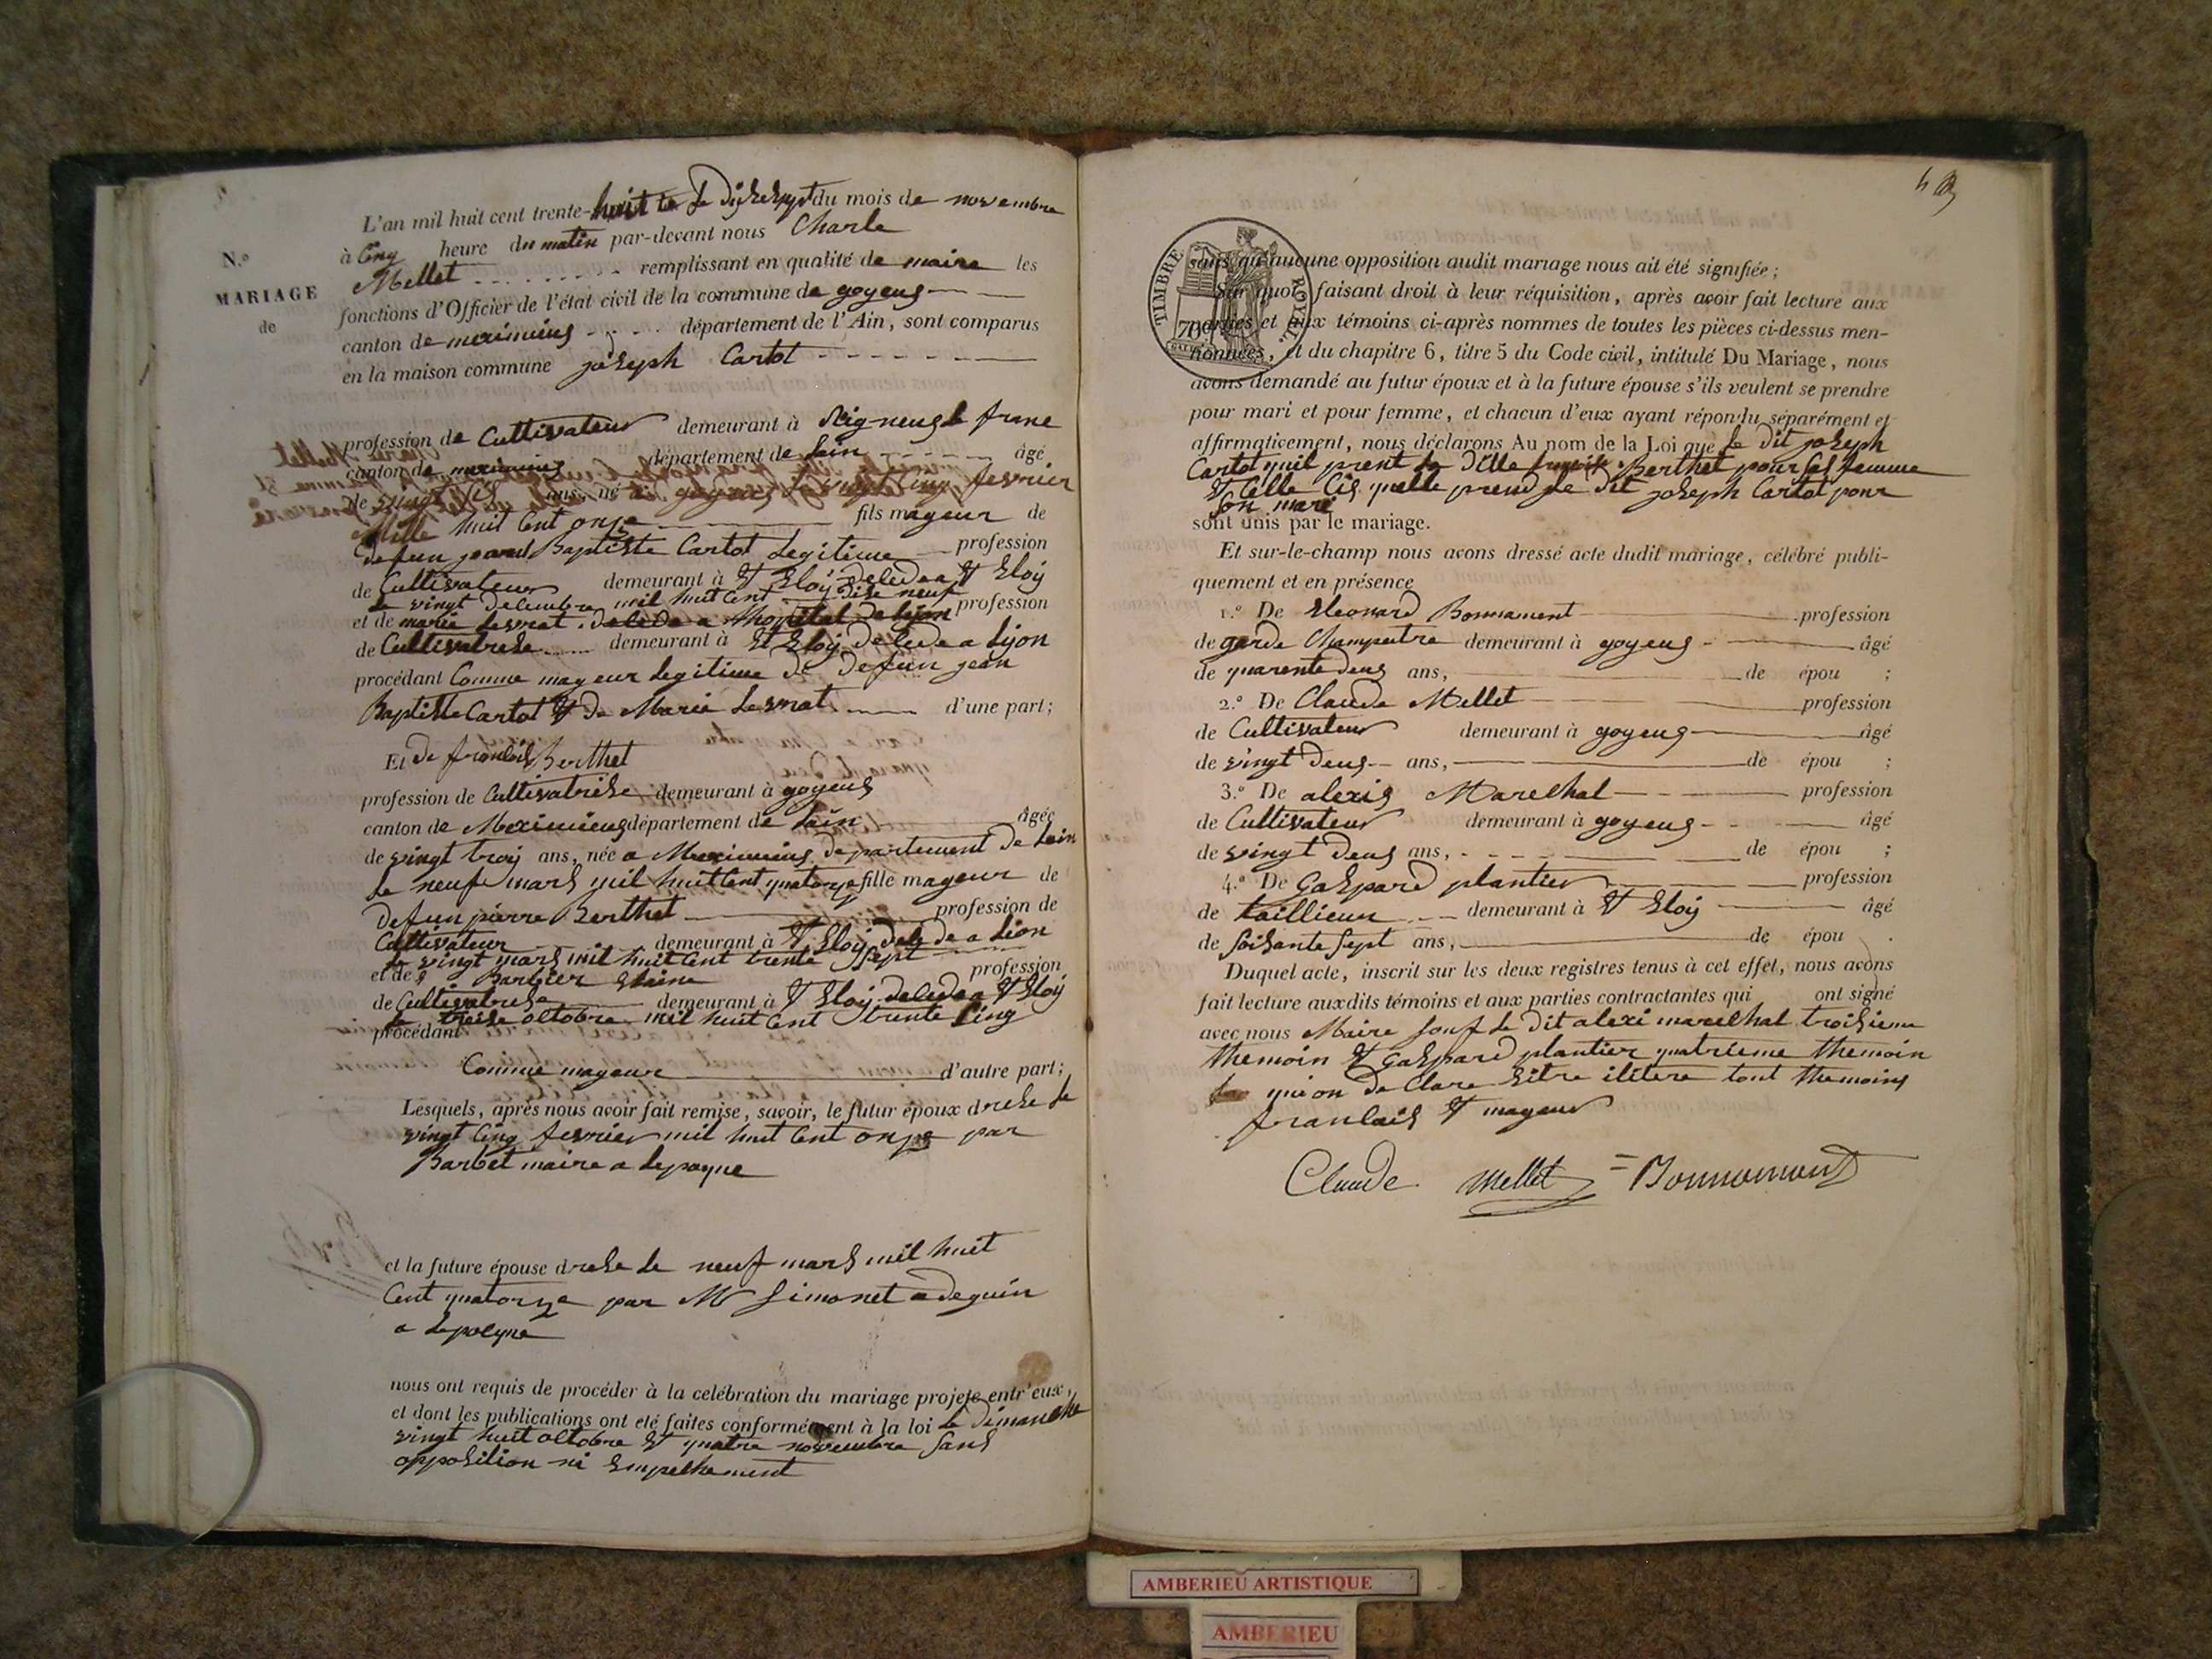 L'an mil huit cent trente-huit le Dizesept du mois de novembre
à Cinq heure du matin par-devant nous Charle
Mellet remplissant en qualité de maire les
fonctions d'Officier de l'état civil de la commune de goyeus
canton de meximius département de l'Ain, sont comparus
en la maison commune joseph Cartot
N.º
MARIAGE
de
profession de Cultivateur demeurant à Rigneus le franc
canton de meximius département de Lain âgé
de vingt ans, né a le vingt cinq fevrier
Mille huit Cent onze fils mageur de
Defun jean Baptiste Cartot Legitime profession
de Cultivateur demeurant à St Eloij decede a St Eloij
Le vingt decembre mil huit Cent dise neuf
et de marie Lesvrat decede a lhopital de Lijon profession
de Cultivatrise demeurant à St Eloij decede a Lijon
procédant Comme mageur Legitime de Defun jean
Baptiste Cartot & de Marie Lesvrat d'une part;
Et de francois Berthet
profession de Cultivatrise demeurant à goyeus
canton de Meximieus département de Lain âgée
de vingt trois ans, née a Meximius departement de Lain
Le neuf mars mil huit Cent quatorze fille mageur de
Defun pierre Berthet profession de
Cultivateur demeurant à St Eloij decede a Lion
Le vingt mars mil huit Cent trente sept
et de Barbier profession
de Cultivatrise demeurant à St Eloij decedea St Eloij
Le treise octobre mil huit Cent trente Cinq
procédant
Comme mageure d'autre part;
Lesquels, après nous avoir fait remise, savoir, le futur époux drese Le
vingt Cinq fevrier mil huit Cent onze par
Barbet maire a Lepoyne
et la future épouse drese Le neuf mars mil huit
Cent quatorze par Mr Simonet adeguin
a Lepoeyne
nous ont requis de procéder à la celébration du mariage projeté entr'eux,
et dont les publications ont eté faites conformément à la loi Le Dimanche
vingt huit octobre & quatre novembre Sans
opposition ni Empeshement
TIMBRE ROYAL
70
sans qu'aucune opposition audit mariage nous ait été signifiée;
Sur quoi, faisant droit à leur réquisition, après avoir fait lecture aux
parties et aux témoins ci-après nommes de toutes les pièces ci-dessus men-
tionnées, et du chapitre 6, titre 5 du Code civil, intitulé Du Mariage, nous
avons demandé au futur époux et à la future épouse s'ils veulent se prendre
pour mari et pour femme, et chacun d'eux ayant répondu séparément et
affirmativement, nous déclarons Au nom de la Loi que Le Dit joseph
Cartot quil prent La Dille Berthet pour Sas femme
& Celle Cis quelle prend Le Dit joseph Cartot pour
Son mari
sont unis par le mariage.
Et sur-le-champ nous avons dressé acte dudit mariage, célébré publi-
quement et en présence
1.º De Eleonard Bonnament profession
de garde Champestre demeurant à goyeus âgé
de quarente deus ans, de épou ;
2.º De Claude Mellet profession
de Cultivateur demeurant à goyeus âgé
de vingt deus ans, de épou ;
3.º De alexis Mareshal profession
de Cultivateur demeurant à goyeus âgé
de vingt deus ans, de épou ;
4.º De Gaspard plantier profession
de taillieur demeurant à St Eloij âgé
de Soisante Sept ans, de épou .
Duquel acte, inscrit sur les deux registres tenus à cet effet, nous avons
fait lecture auxdits témoins et aux parties contractantes qui ont signé
avec nous Maire Souf Le Dit alexi mareshal troisieme
themoin & Gaspard plantier quatrieme themoin
qui on De Clare Eitre ilitere tout themoins
francais & mageur
Claude Mellet Bonnomont
AMBERIEU ARTISTIQUE
AMBERIEU